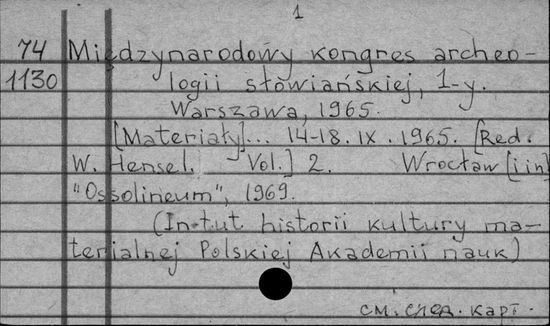 1
74 Międzynarodowy kongres archeo-
1130 logii słowiańskiej, 1-y.
Warszawa, 1965.
[Materiały]... 14-18.IX.1965. [Red.
W. Hensel. Vol.] 2. Wrocław [i in]
"Ossolineum", 1969.
(In-t ut historii kultury ma-
terialnej Polskiej Akademii nauk)
см. след. карт.